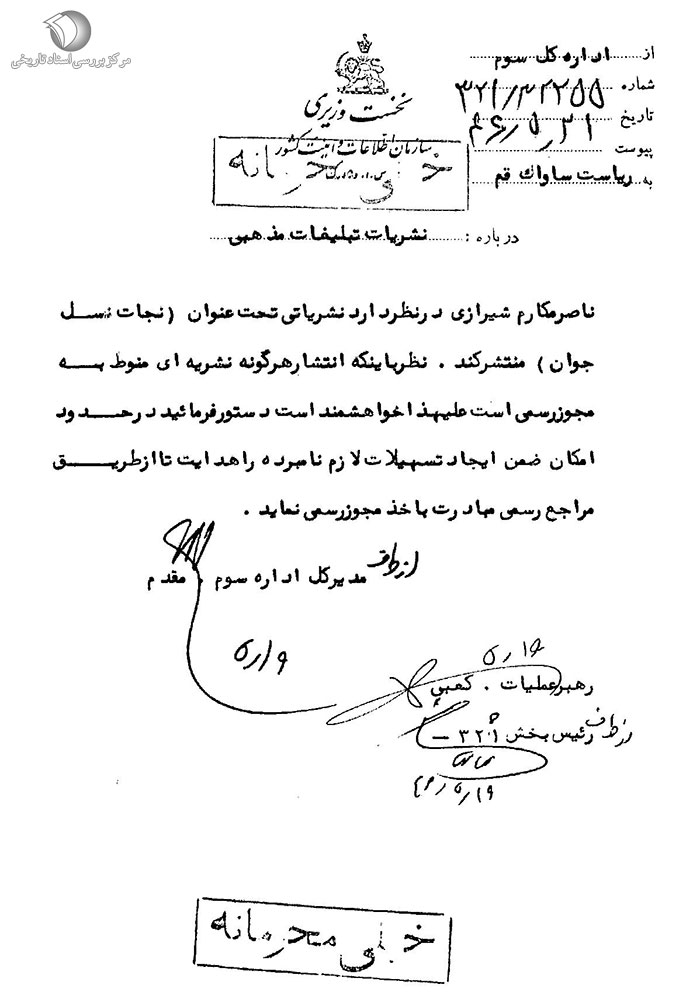 مرکز بررسی اسناد تاریخی
نخست وزیری
سازمان اطلاعات و امنیت کشور
س.ا.و.ا.ک
از اداره کل سوم
شماره ۳۲۱/۳۲۲۵۵
تاریخ ۴۶/۵/۳۱
پیوست
به ریاست ساواک قم
خیلی محرمانه
درباره : نشریات تبلیغات مذهبی
ناصر مکارم شیرازی در نظر دارد نشریاتی تحت عنوان (نجات نسل
جوان) منتشر کند . نظر باینکه انتشار هرگونه نشریه ای منوط به
مجوز رسمی است علیهذا خواهشمند است دستور فرمائید در حدود
امکان ضمن ایجاد تسهیلات لازم نامبرده را هدایت تا از طریق
مراجع رسمی مبادرت باخذ مجوز رسمی نماید .
از طرف مدیرکل اداره سوم . مقدم
۵/۹
۵/۹
رهبر عملیات .
از طرف رئیس بخش ۳۲۱ –
خیلی محرمانه